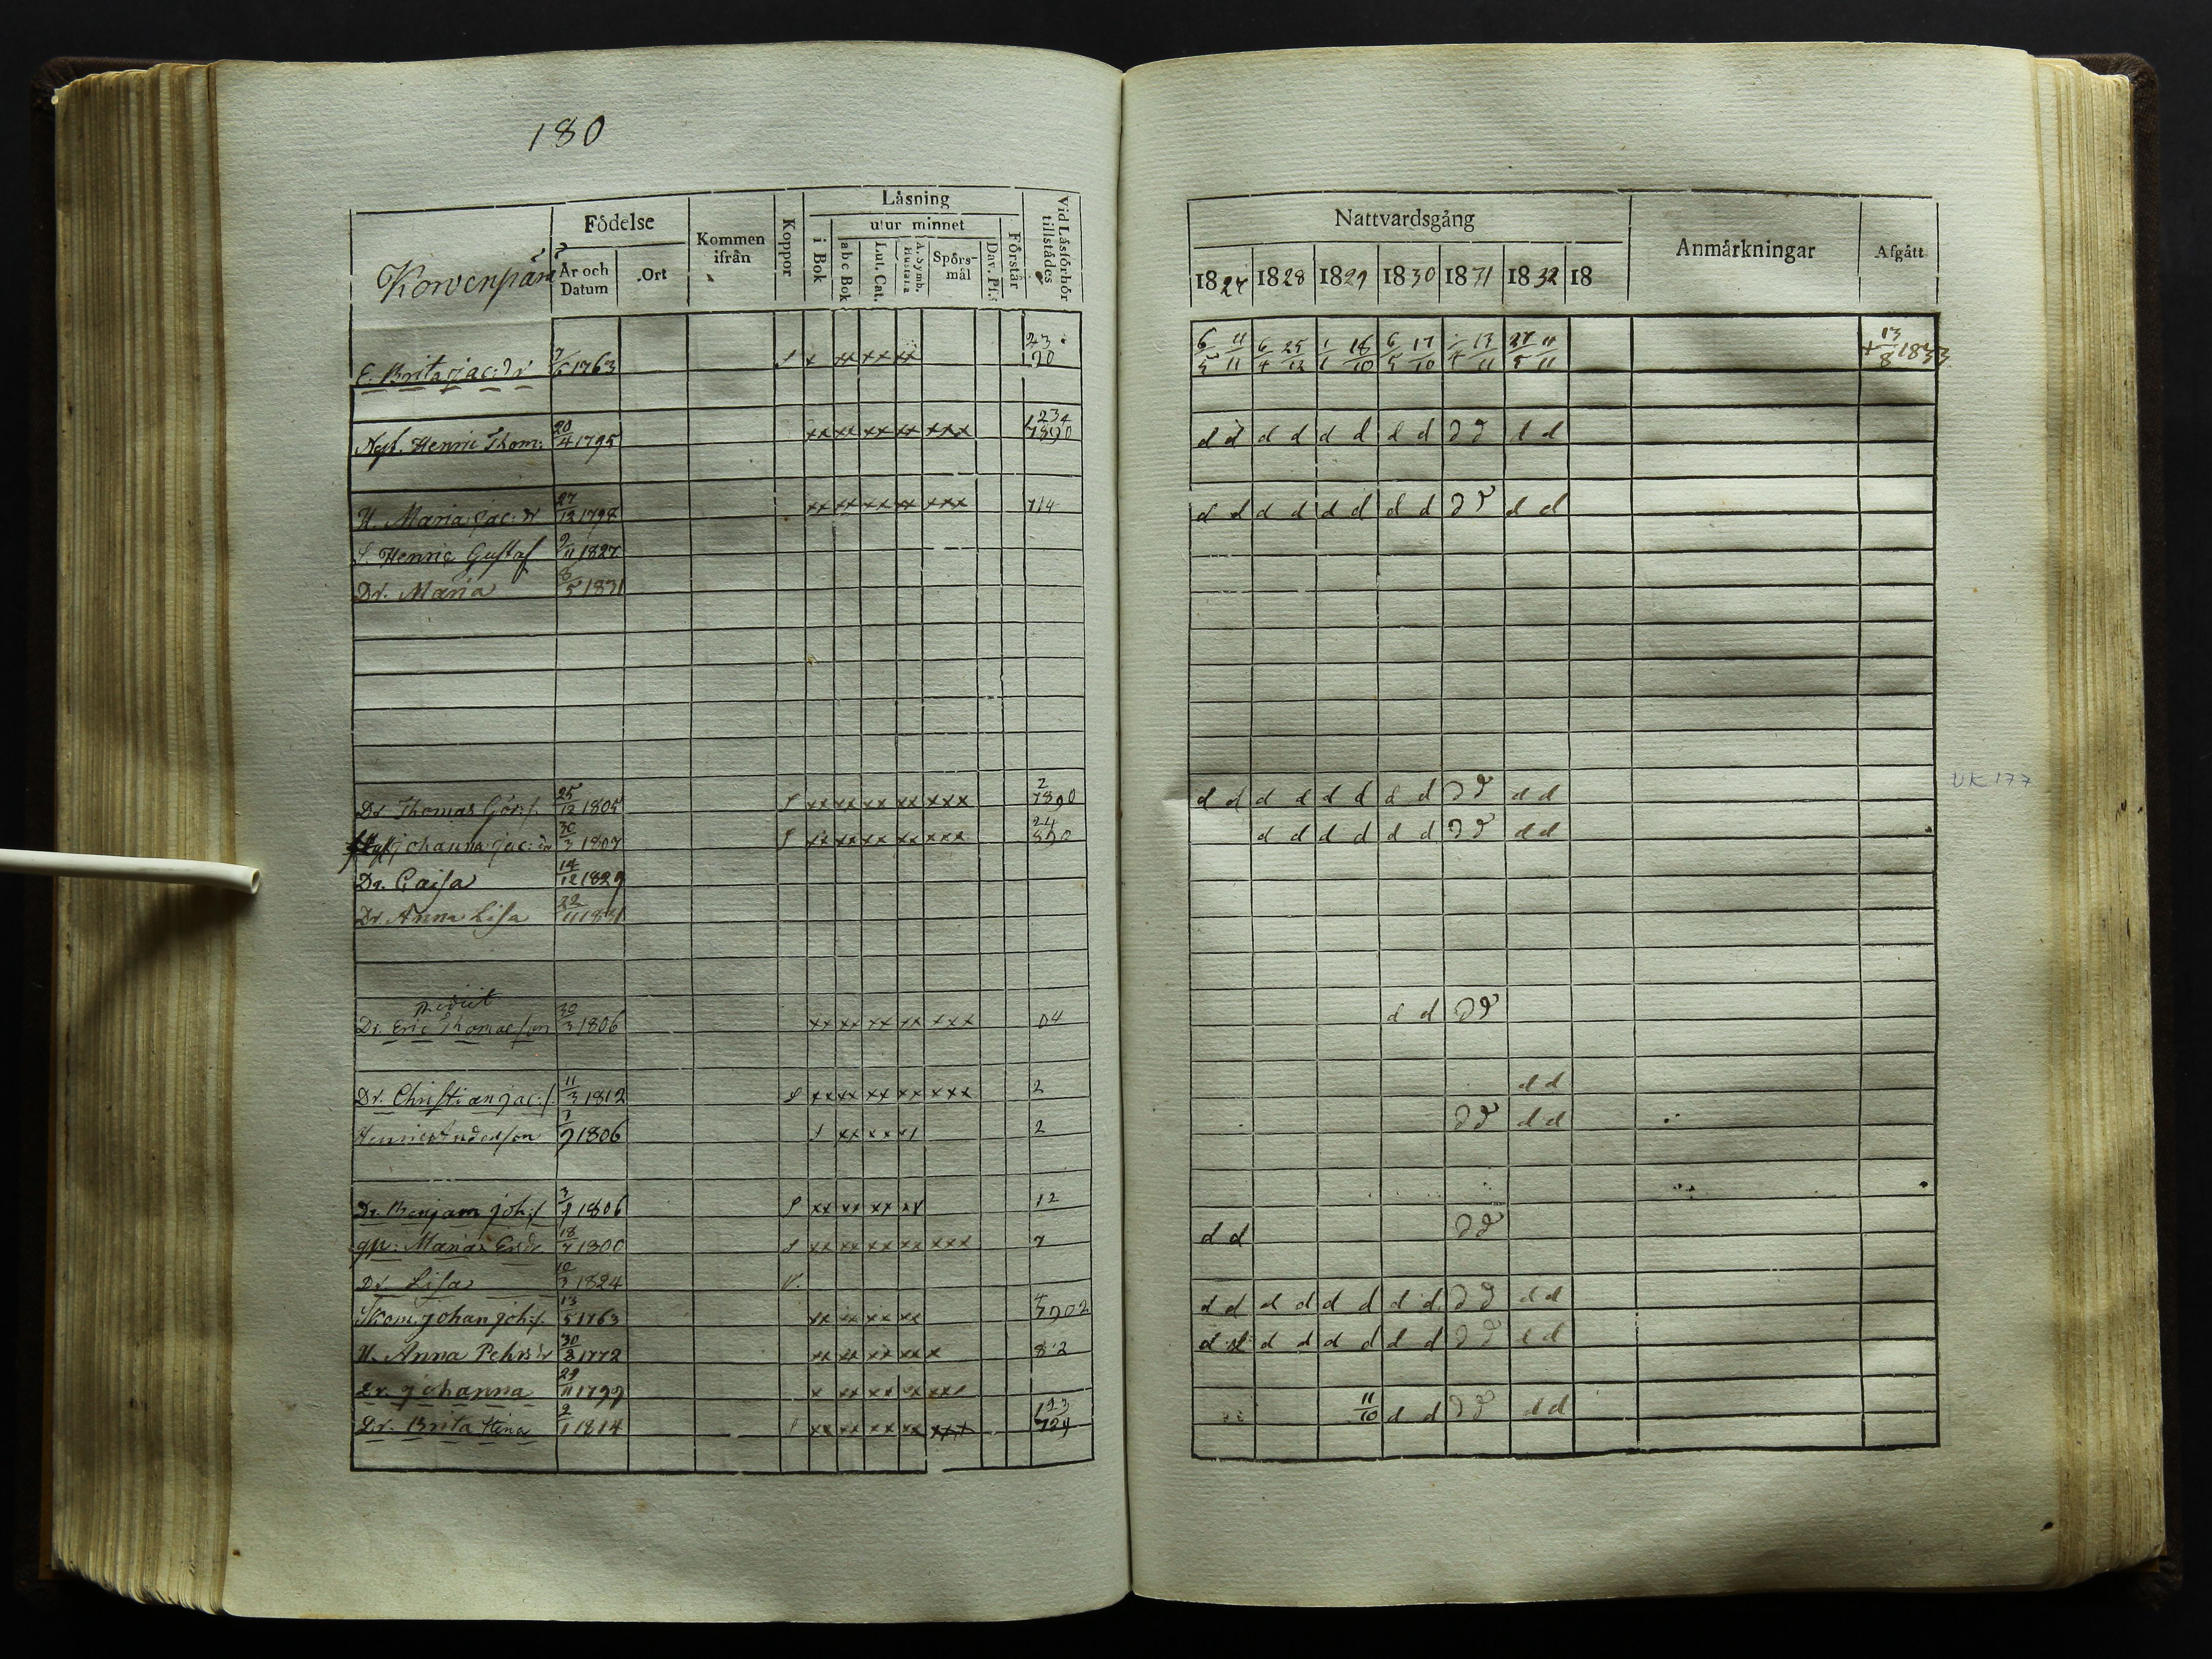 180
Korvenpää
Födelse
År och Datum
Ort
Kommen ifrån
Koppor
Läsning
i Bok
utur minnet
a b c Bok
Lut. Cat.
A. Symb.
Hustafla
Spörs-mål
Dav. Ps.
Förstår
Vid Läsförhör tillstädes
Nattvardsgång
1827 1828 1829 1830 1831 1832 18
Anmärkningar
Afgått
E. Brita Jac:dr 7/6 1763 x xx xx xx 23 120 6/5 11/11 6/4 25/12 1/1 18/10 6/5 17/10 13/11 27/5 11/11 + 13/8 1833
Henric Thom: 20/4 1795 xx xx xx xx xxx d d d d d d d d d d d d
H. Maria Jac:dr 27/12 1798 xx xx xx xx xxx 714 d d d d d d d d d d d d
S. Henric Gustaf 2/11 1827
Dr. Maria 8/5 1831
Dr. Thomas Gör:s. 25/12 1805 xx xx xx xx xxx 2 7890 d d d d d d d d d d d d
UK 177
Johanna Jac:dr 30/3 1807 xx xx xx xx xxx 24 890 d d d d d d d d d d
Dr. Caisa 14/12 1829
Dr. Anna Lisa 22/11 1831
rediit
Dr. Eric Thomasson 30/3 1806 xx xx xx xx xxx 04 d d d d
Dr. Christian Jac:s. 11/3 1812 xx xx xx xx xxx 2 d d
Henric Anderson 1806 2 d d d d
Dr. Benjam Joh:s 1806 xx xx xx 12
gp: Maria Ersdr 18/7 1800 xx xx xx xx xxx 7 d d d d
Dr. Lisa 10/3 1824 V.
Johan Joh:s. 13/5 1763 xx xx xx xx d d d d d d d d d d d d
H. Anna Pehrsdr 30/8 1772 xx xx xx xx x 812 d d d d d d d d d d d
Dr. Johanna 29/11 1799 x xx xx xx xxx
Dr. Brita Stina 2/1 1814 xx xx xx xx xxx 123 729 11/10 d d d d d d